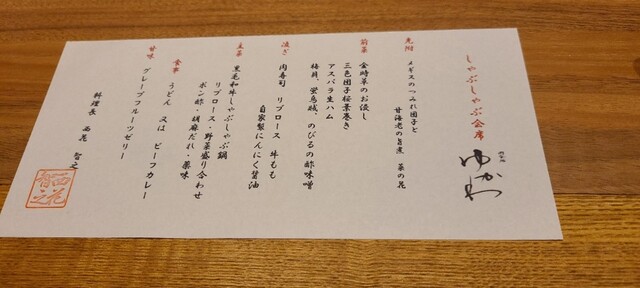 しゃぶしゃぶ会席
ゆかわ
先附
メギスのつみれ団子と
甘海老の旨煮 菜の花
前菜
金時草のお浸し
三色団子桜葉巻き
アスパラ生ハム
梅貝、蛍烏賊、のびるの酢味噌
凌ぎ
肉寿司 リブロース 牛もも
自家製にんにく醤油
主菜
黒毛和牛しゃぶしゃぶ鍋
リブロース・野菜盛り合わせ
ポン酢・胡麻だれ・薬味
食事
うどん 又は ビーフカレー
甘味
グレープフルーツゼリー
料理長 西花 智之
西花
智之